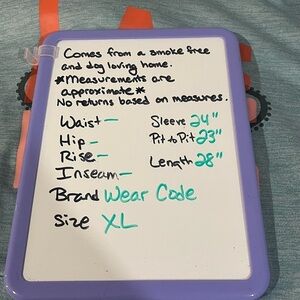 Comes from a smoke free
and dog loving home.
*Measurements are
approximate*
No returns based on measures.
Waist-
Hip-
Rise-
Inseam-
Sleeve 24"
Pit to Pit 23"
Length 28"
Brand Wear Code
Size XL